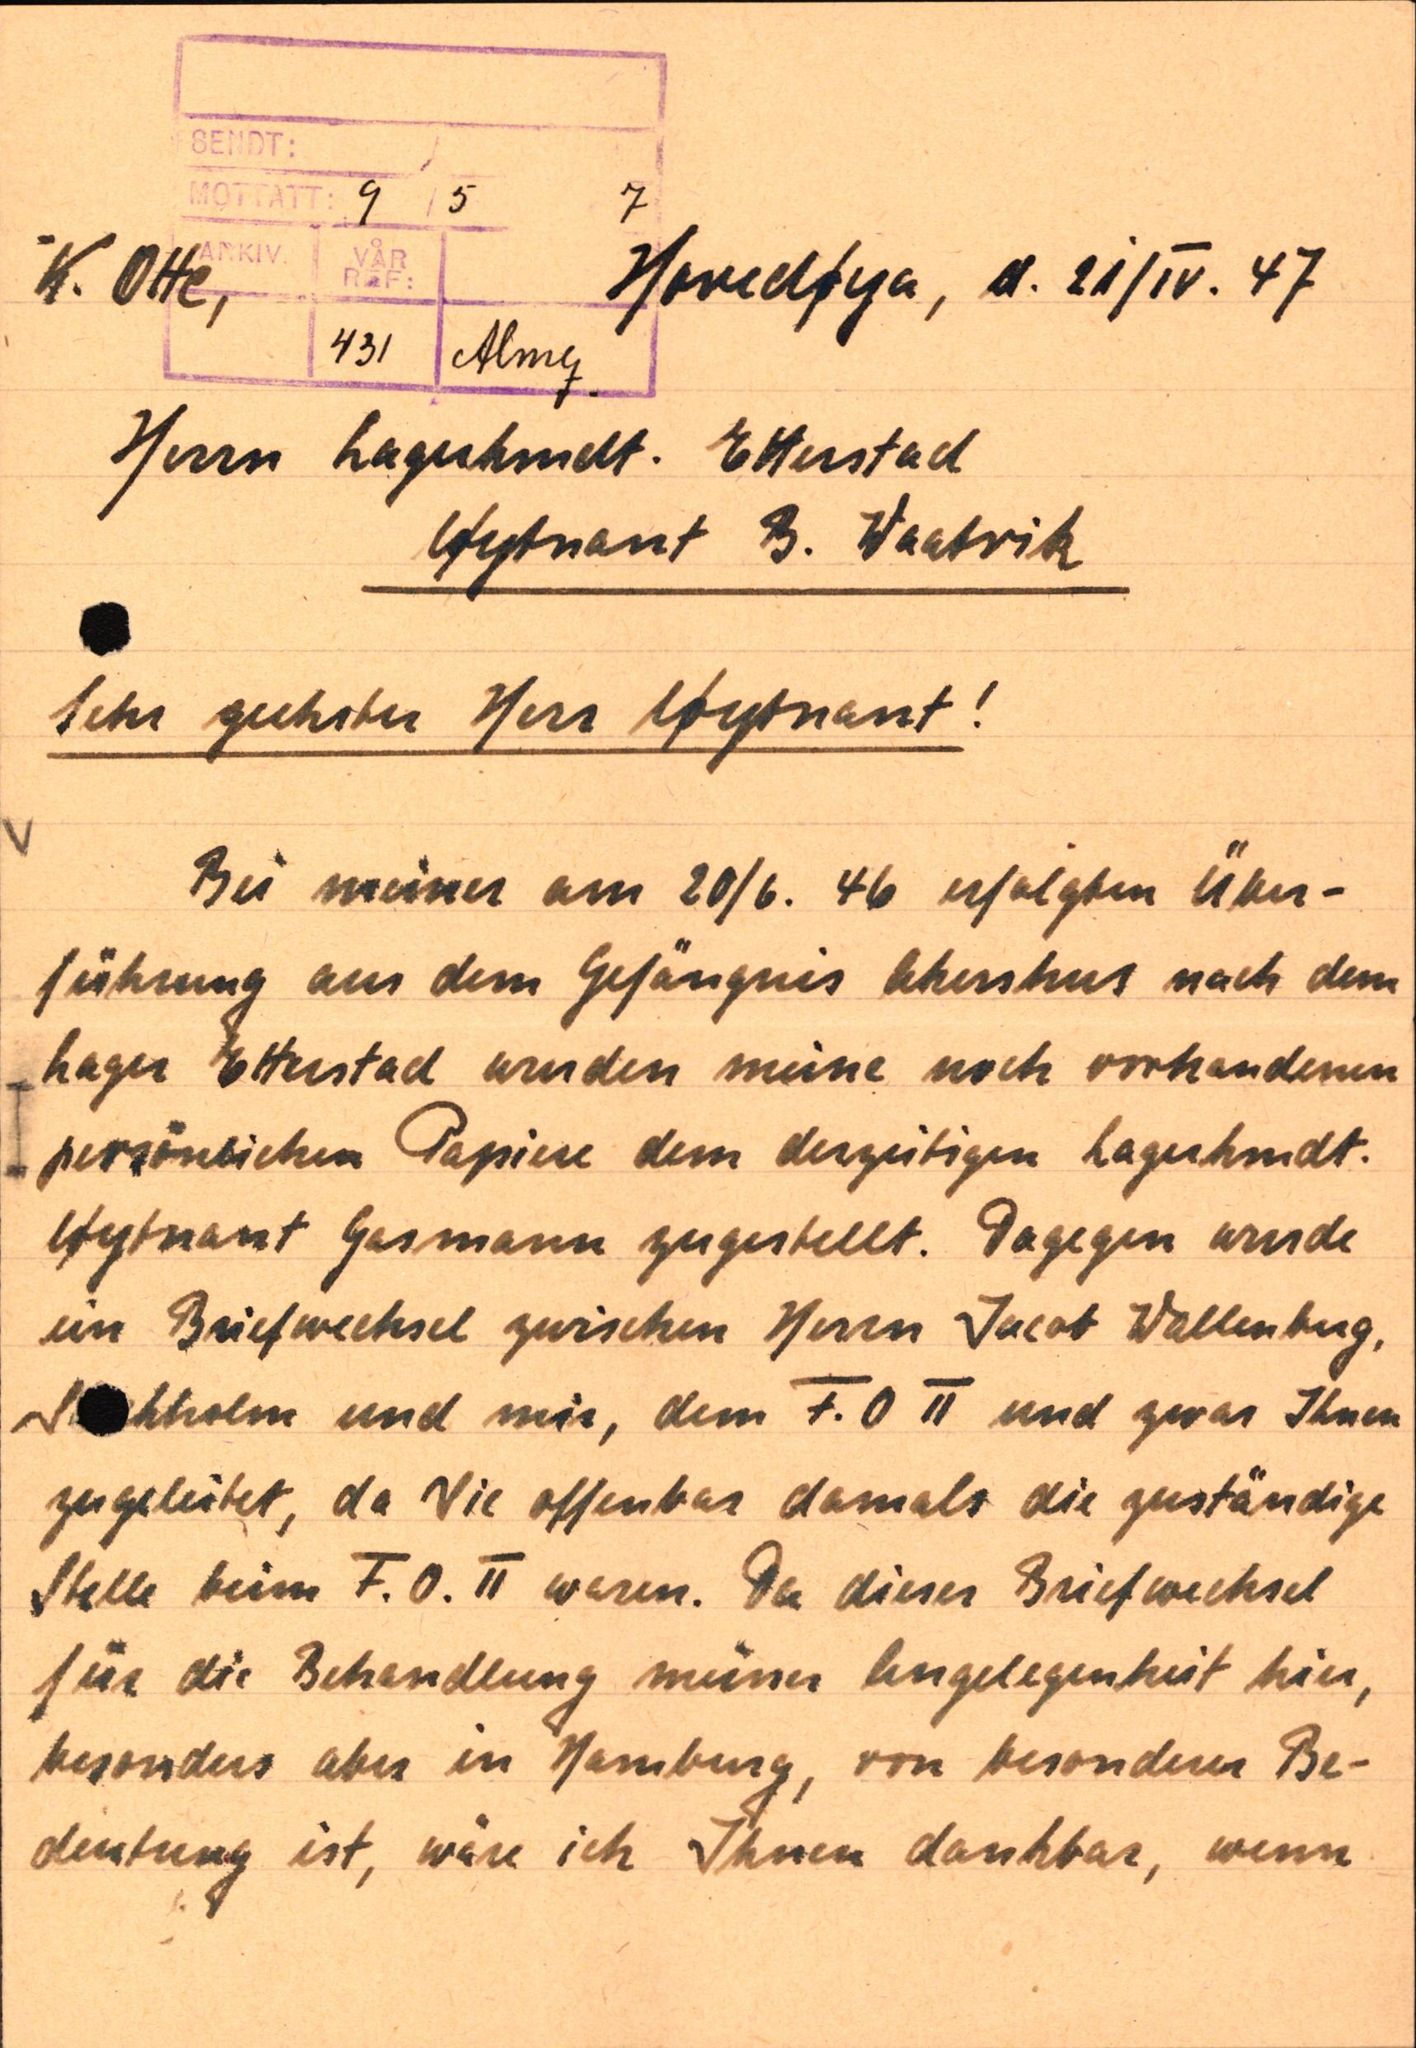 SENDT:
MOTTATT: 9/5 7
ARKIV. VÅR REF:
431 Almq.
K. Otte, Hovedøya, d. 21/IV. 47
Herrn Lagerkmdt. Etterstad
Løytnant B. Waatvik
Sehr geehrter Herr Løytnant!
Bei meiner am 20/6. 46 erfolgten Über-
führung aus dem Gefängnis Akershus nach dem
Lager Etterstad wurden meine noch vorhandenen
persönlichen Papiere dem derzeitigen Lagerkmdt.
Løytnant Gasmann zugestellt. Dagegen wurde
ein Briefwechsel zwischen Herrn Jacob Wallenberg,
Stockholm und mir, dem F.O II und zwar Ihnen
zugeleitet, da Sie offenbar damals die zuständige
Stelle beim F.O.II waren. Da dieser Briefwechsel
für die Behandlung meiner Angelegenheit hier,
besonders aber in Hamburg, von besonderer Be-
deutung ist, wäre ich Ihnen dankbar, wenn